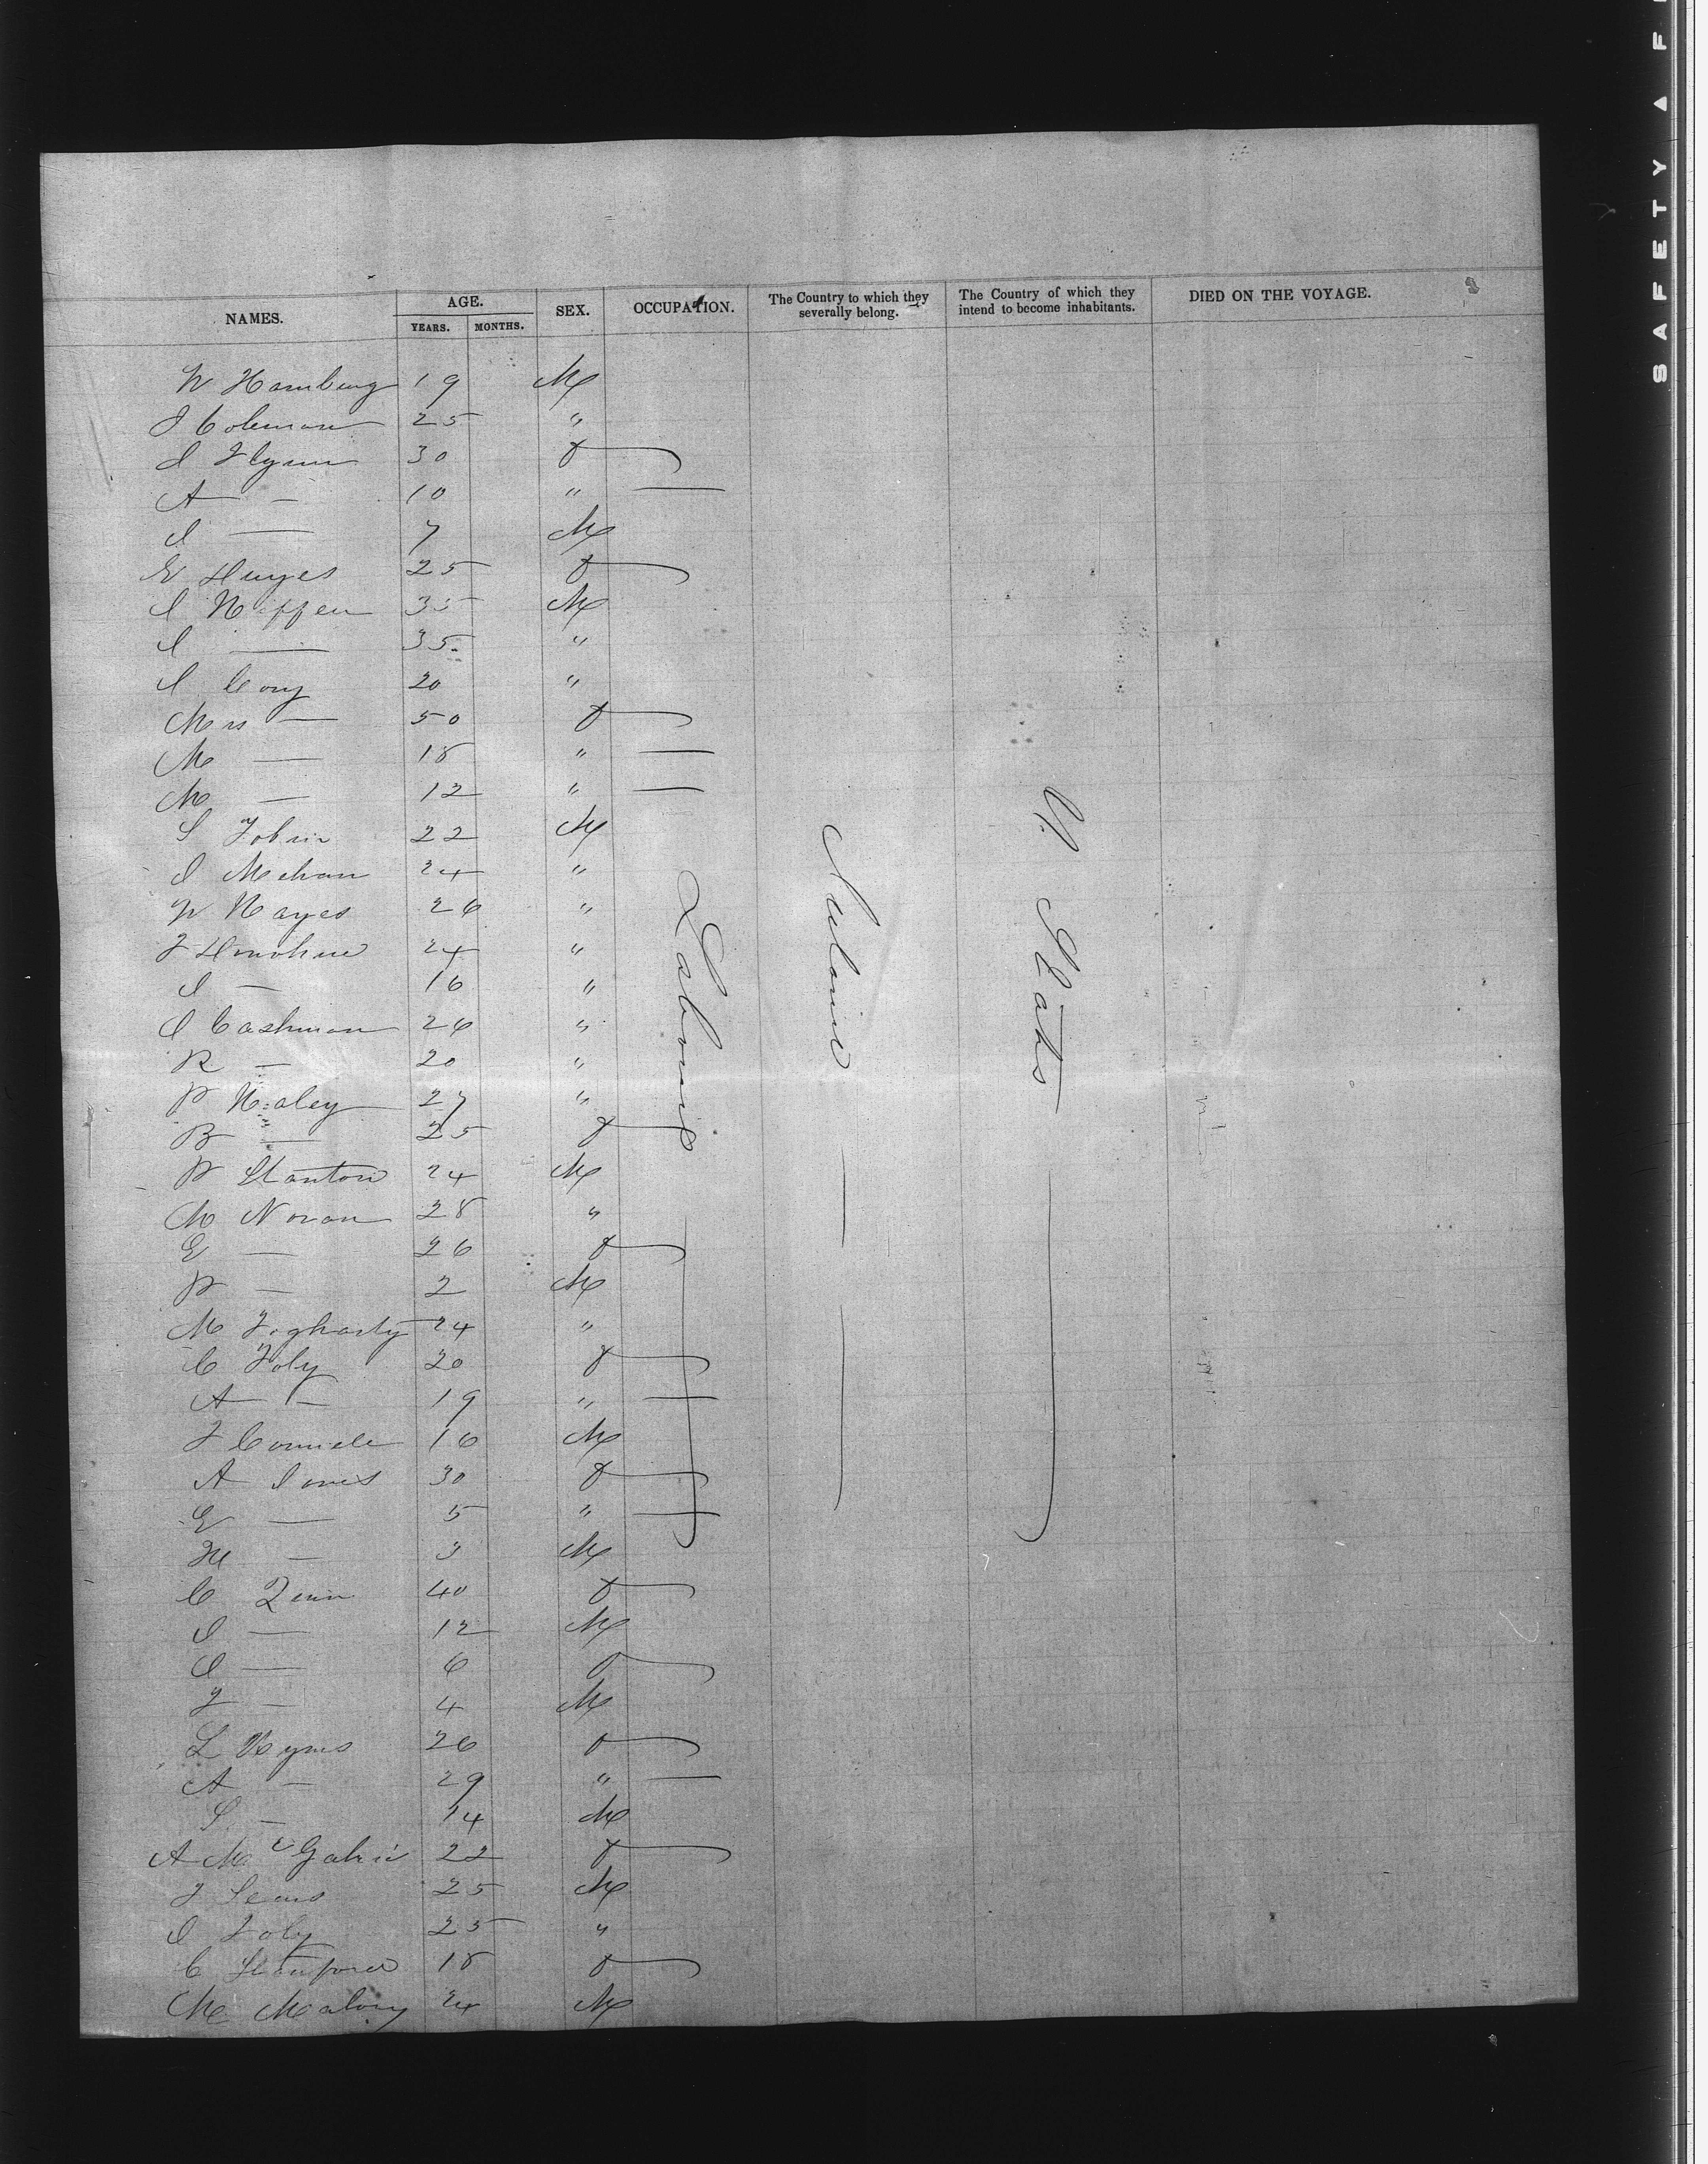 SAFETY
NAMES. AGE. SEX. OCCUPATION. The Country to which they severally belong. The Country of which they intend to become inhabitants. DIED ON THE VOYAGE.
YEARS. MONTHS.
W Hamburg 19 M
J Coleman 25 "
J Flynn 30 F
A — 10 " —
J — 7 M
E 25 F
J 35 M
J — 35 "
J Cory 20 "
Mrs — 50 F
M — 18 " —
M — 12 " —
S Tobin 22 M
J Mehan 24 "
W Hayes 26 "
J Donohue 24 "
J — 16 "
J Cashman 26 "
R — 20 "
P Haley 27 "
B — 25 F
P Stanton 24 M
M Noran 28 "
E — 26 F
P — 2 M
M 24 "
C Foly 20 F
A — 19 " —
J 16 M
A Jones 30 F
E — 5 " —
M — 3 M
C Quin 40 F
J — 12 M
J — 6 F
J — 4 M
L 26 F
A — 29 " —
S — 14 M
A Mc 22 F
J 25 M
J Foly 25 "
C 18 F
M Malony 24 M
Labourers
Ireland
U. States